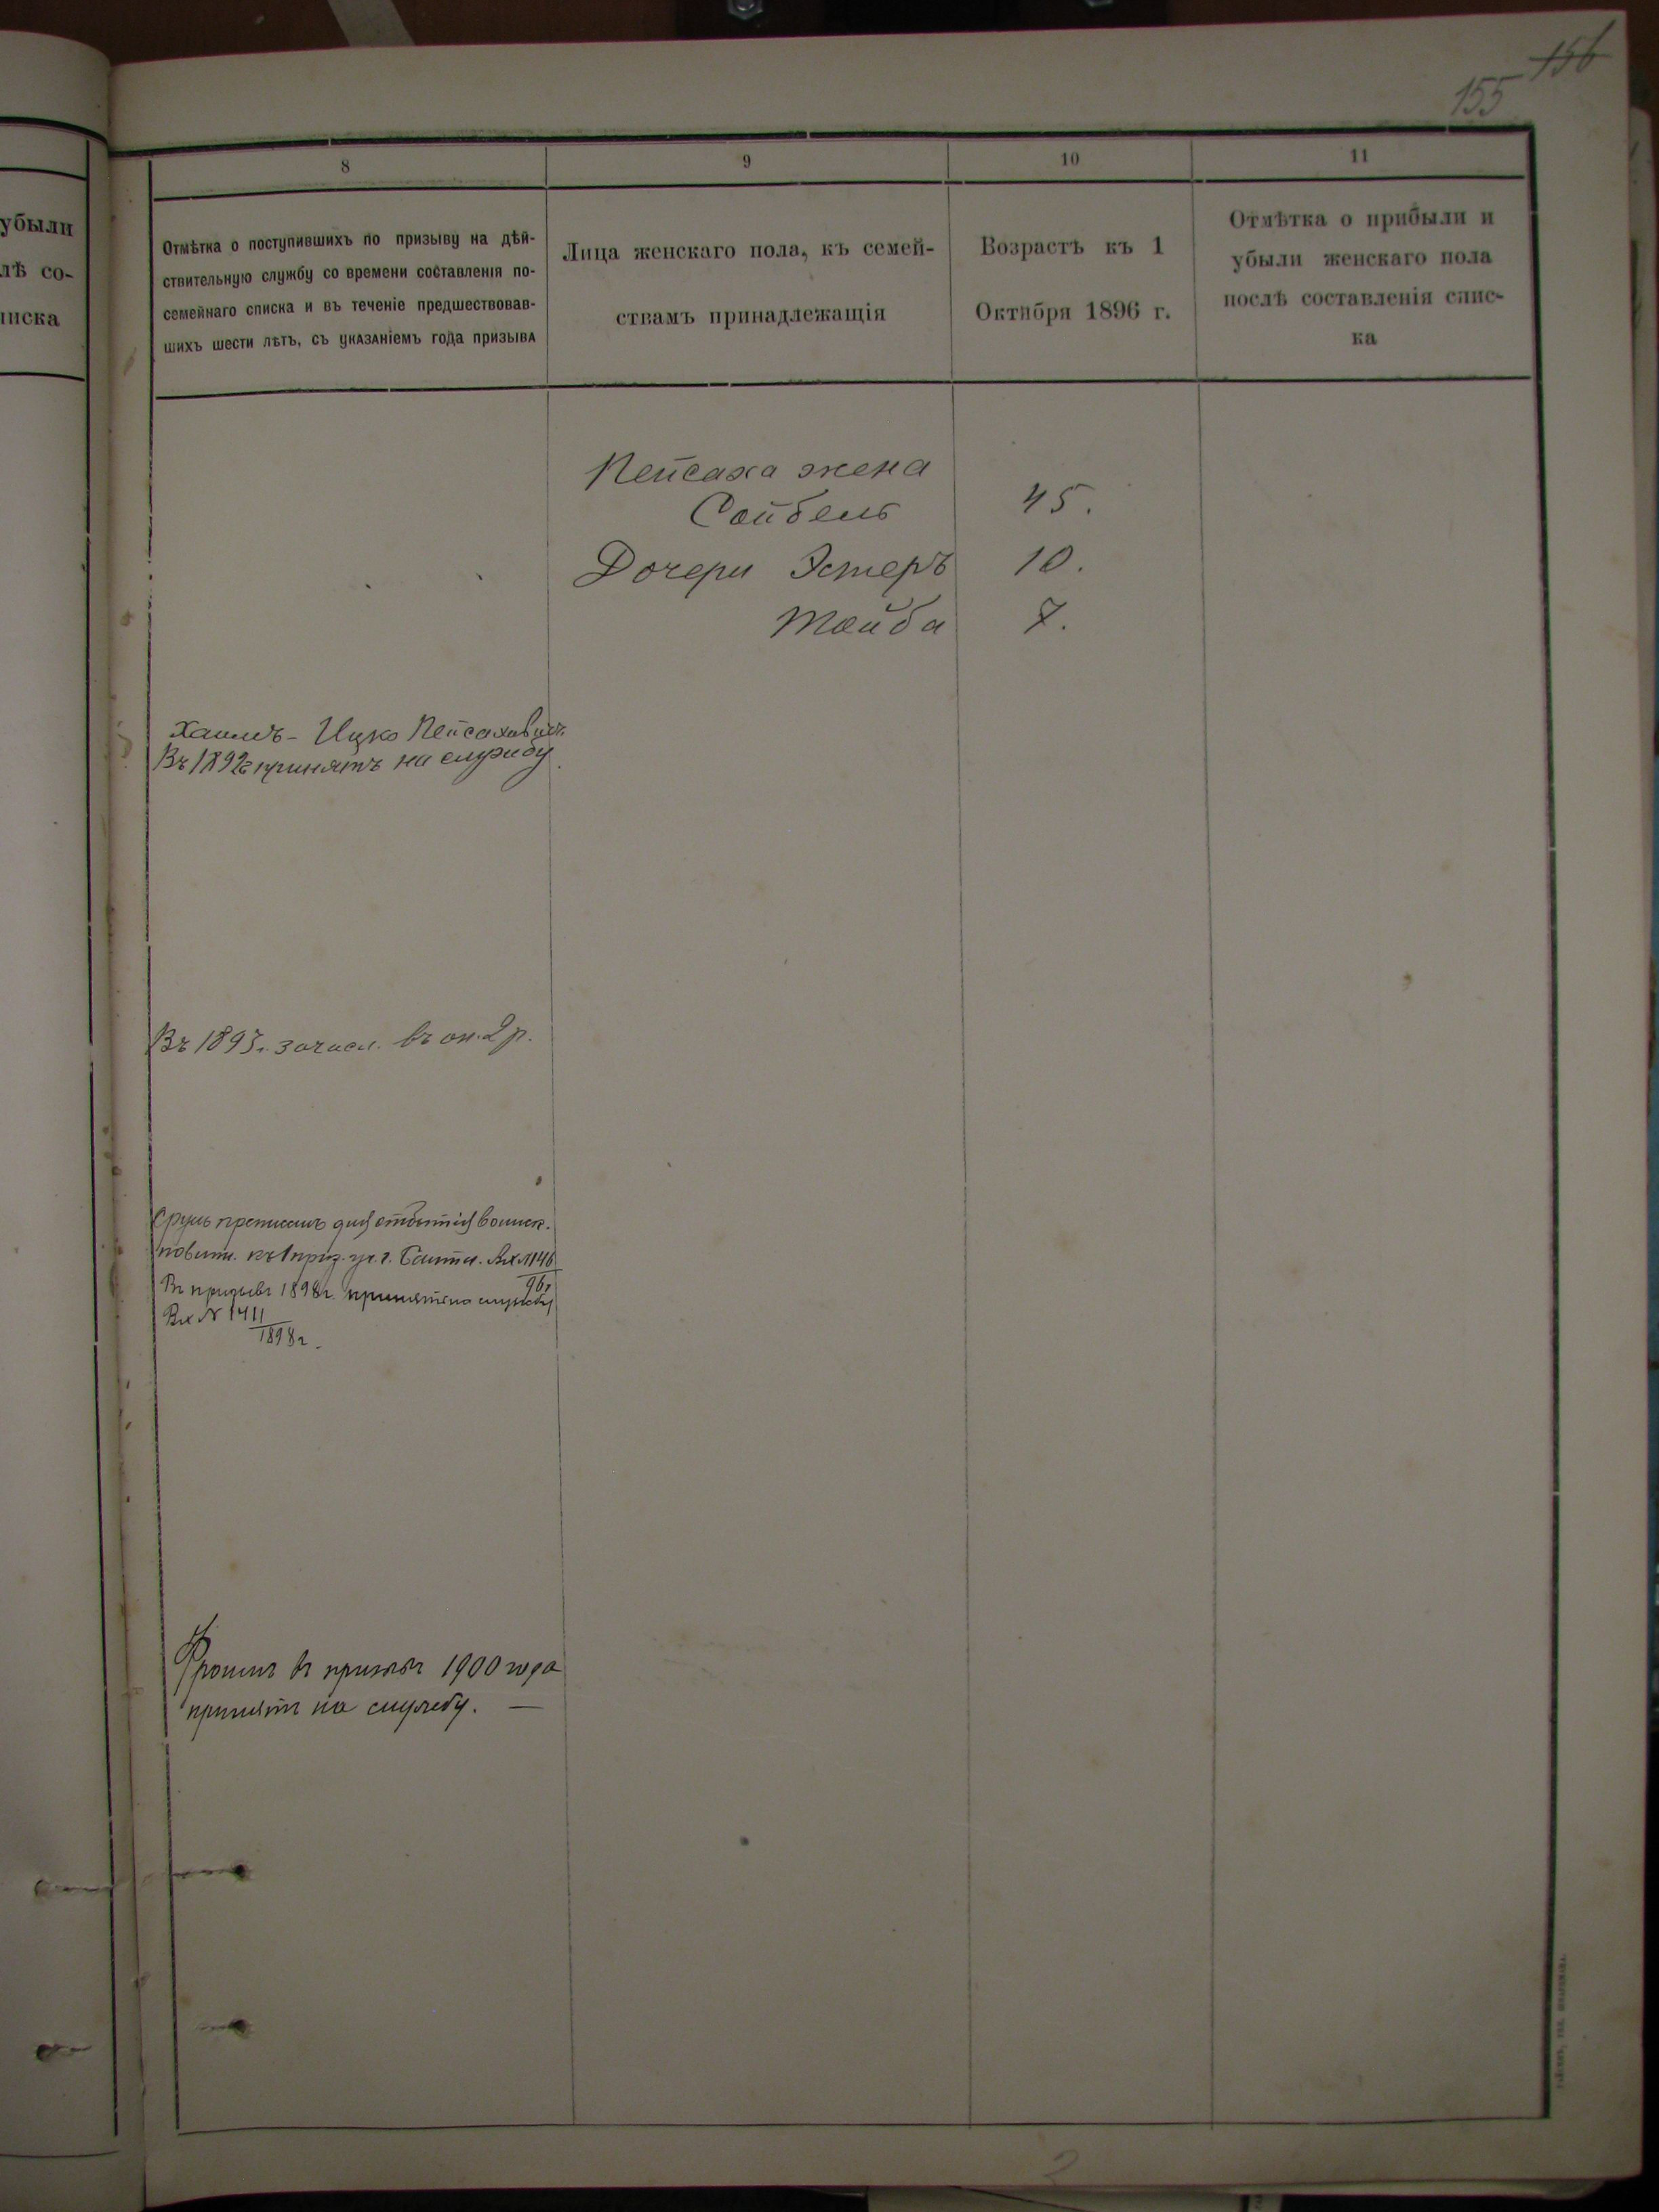 156
155
убыли
лѣ со-
писка
8
9
10
11
Отмѣтка о поступившихъ по призыву на дѣй-
ствительную службу со времени составленія по-
семейнаго списка и въ теченіе предшествовав-
шихъ шести лѣтъ, съ указаніемъ года призыва
Лица женскаго пола, къ семей-
ствамъ принадлежащія
Возрастъ къ 1
Октября 1896 г.
Отмѣтка о прибыли и
убыли женскаго пола
послѣ составленія спис-
ка
Пейсаха жена
Сойбель 45.
Дочери Эстеръ 10.
Тайба 7.
Хаимъ-Ицко Пейсаховичъ
Въ 1892 г. принятъ на службу
Въ 1893 г. зачисл. въ оп. 2 р.
Сруль приписанъ для отбытія воинск.
повин. къ 1 приз. уч. г. Балта. Вх. №146
96 г
Въ призывъ 1898 г. принятъ на службу
Вх № 1411
1898 г.
Фроимъ въ призывъ 1900 года
принятъ на службу. —